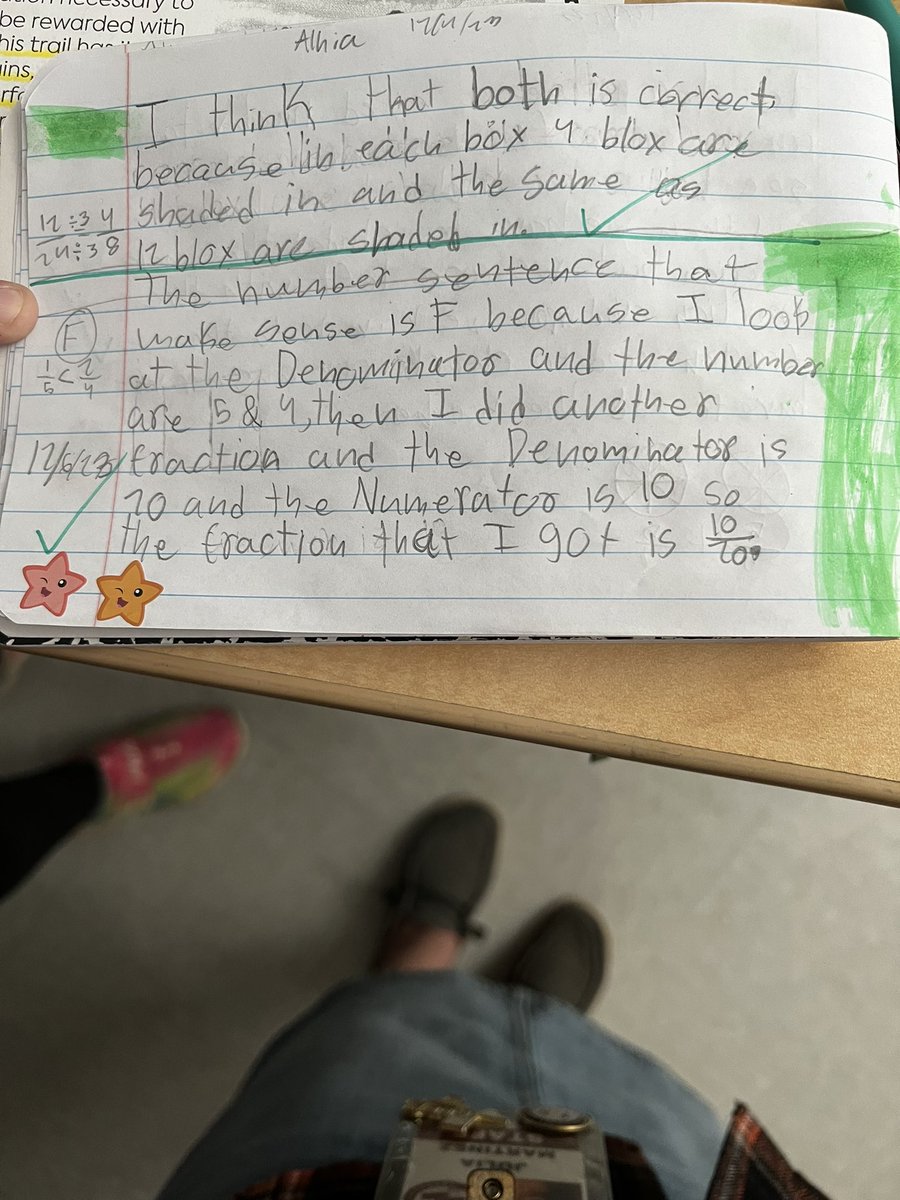 be rewarded with
his trail
ains,
Alhia
I think that both is correct,
because in each box 4 blox are
shaded in and the same as
12 ÷3 4
24 ÷3 8
12 blox are shaded in.
The number sentence that
F make sense is F because I look
1/5 < 2/4 at the Denominator and the number
are 5 & 4, then I did another
12/6/23 fraction and the Denominator is
20 and the Numerator is 10 so
the fraction that I got is 10/20.
JULIA
MARTINEZ